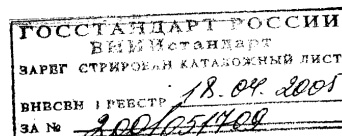 ГОССТАНДАРТ РОССИИ
ВНИИстандарт
ЗАРЕГ СТРИРОВАН КАТАЛОЖНЫЙ ЛИСТ
ВНЕСЕН В РЕЕСТР 18.04.2001
ЗА № 2001051709